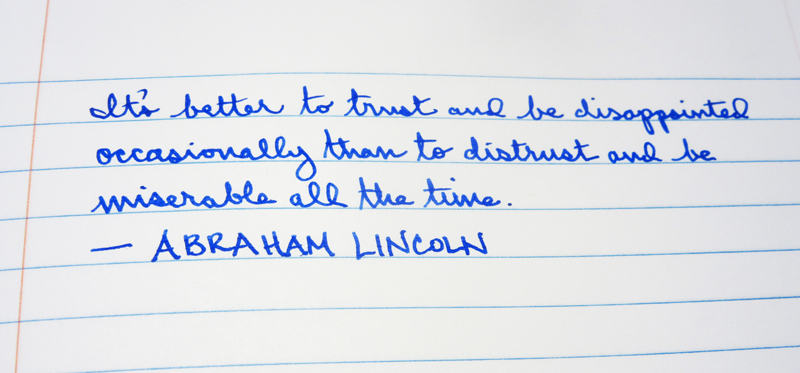 It's better to trust and be disappointed
occasionally than to distrust and be
miserable all the time.
— ABRAHAM LINCOLN